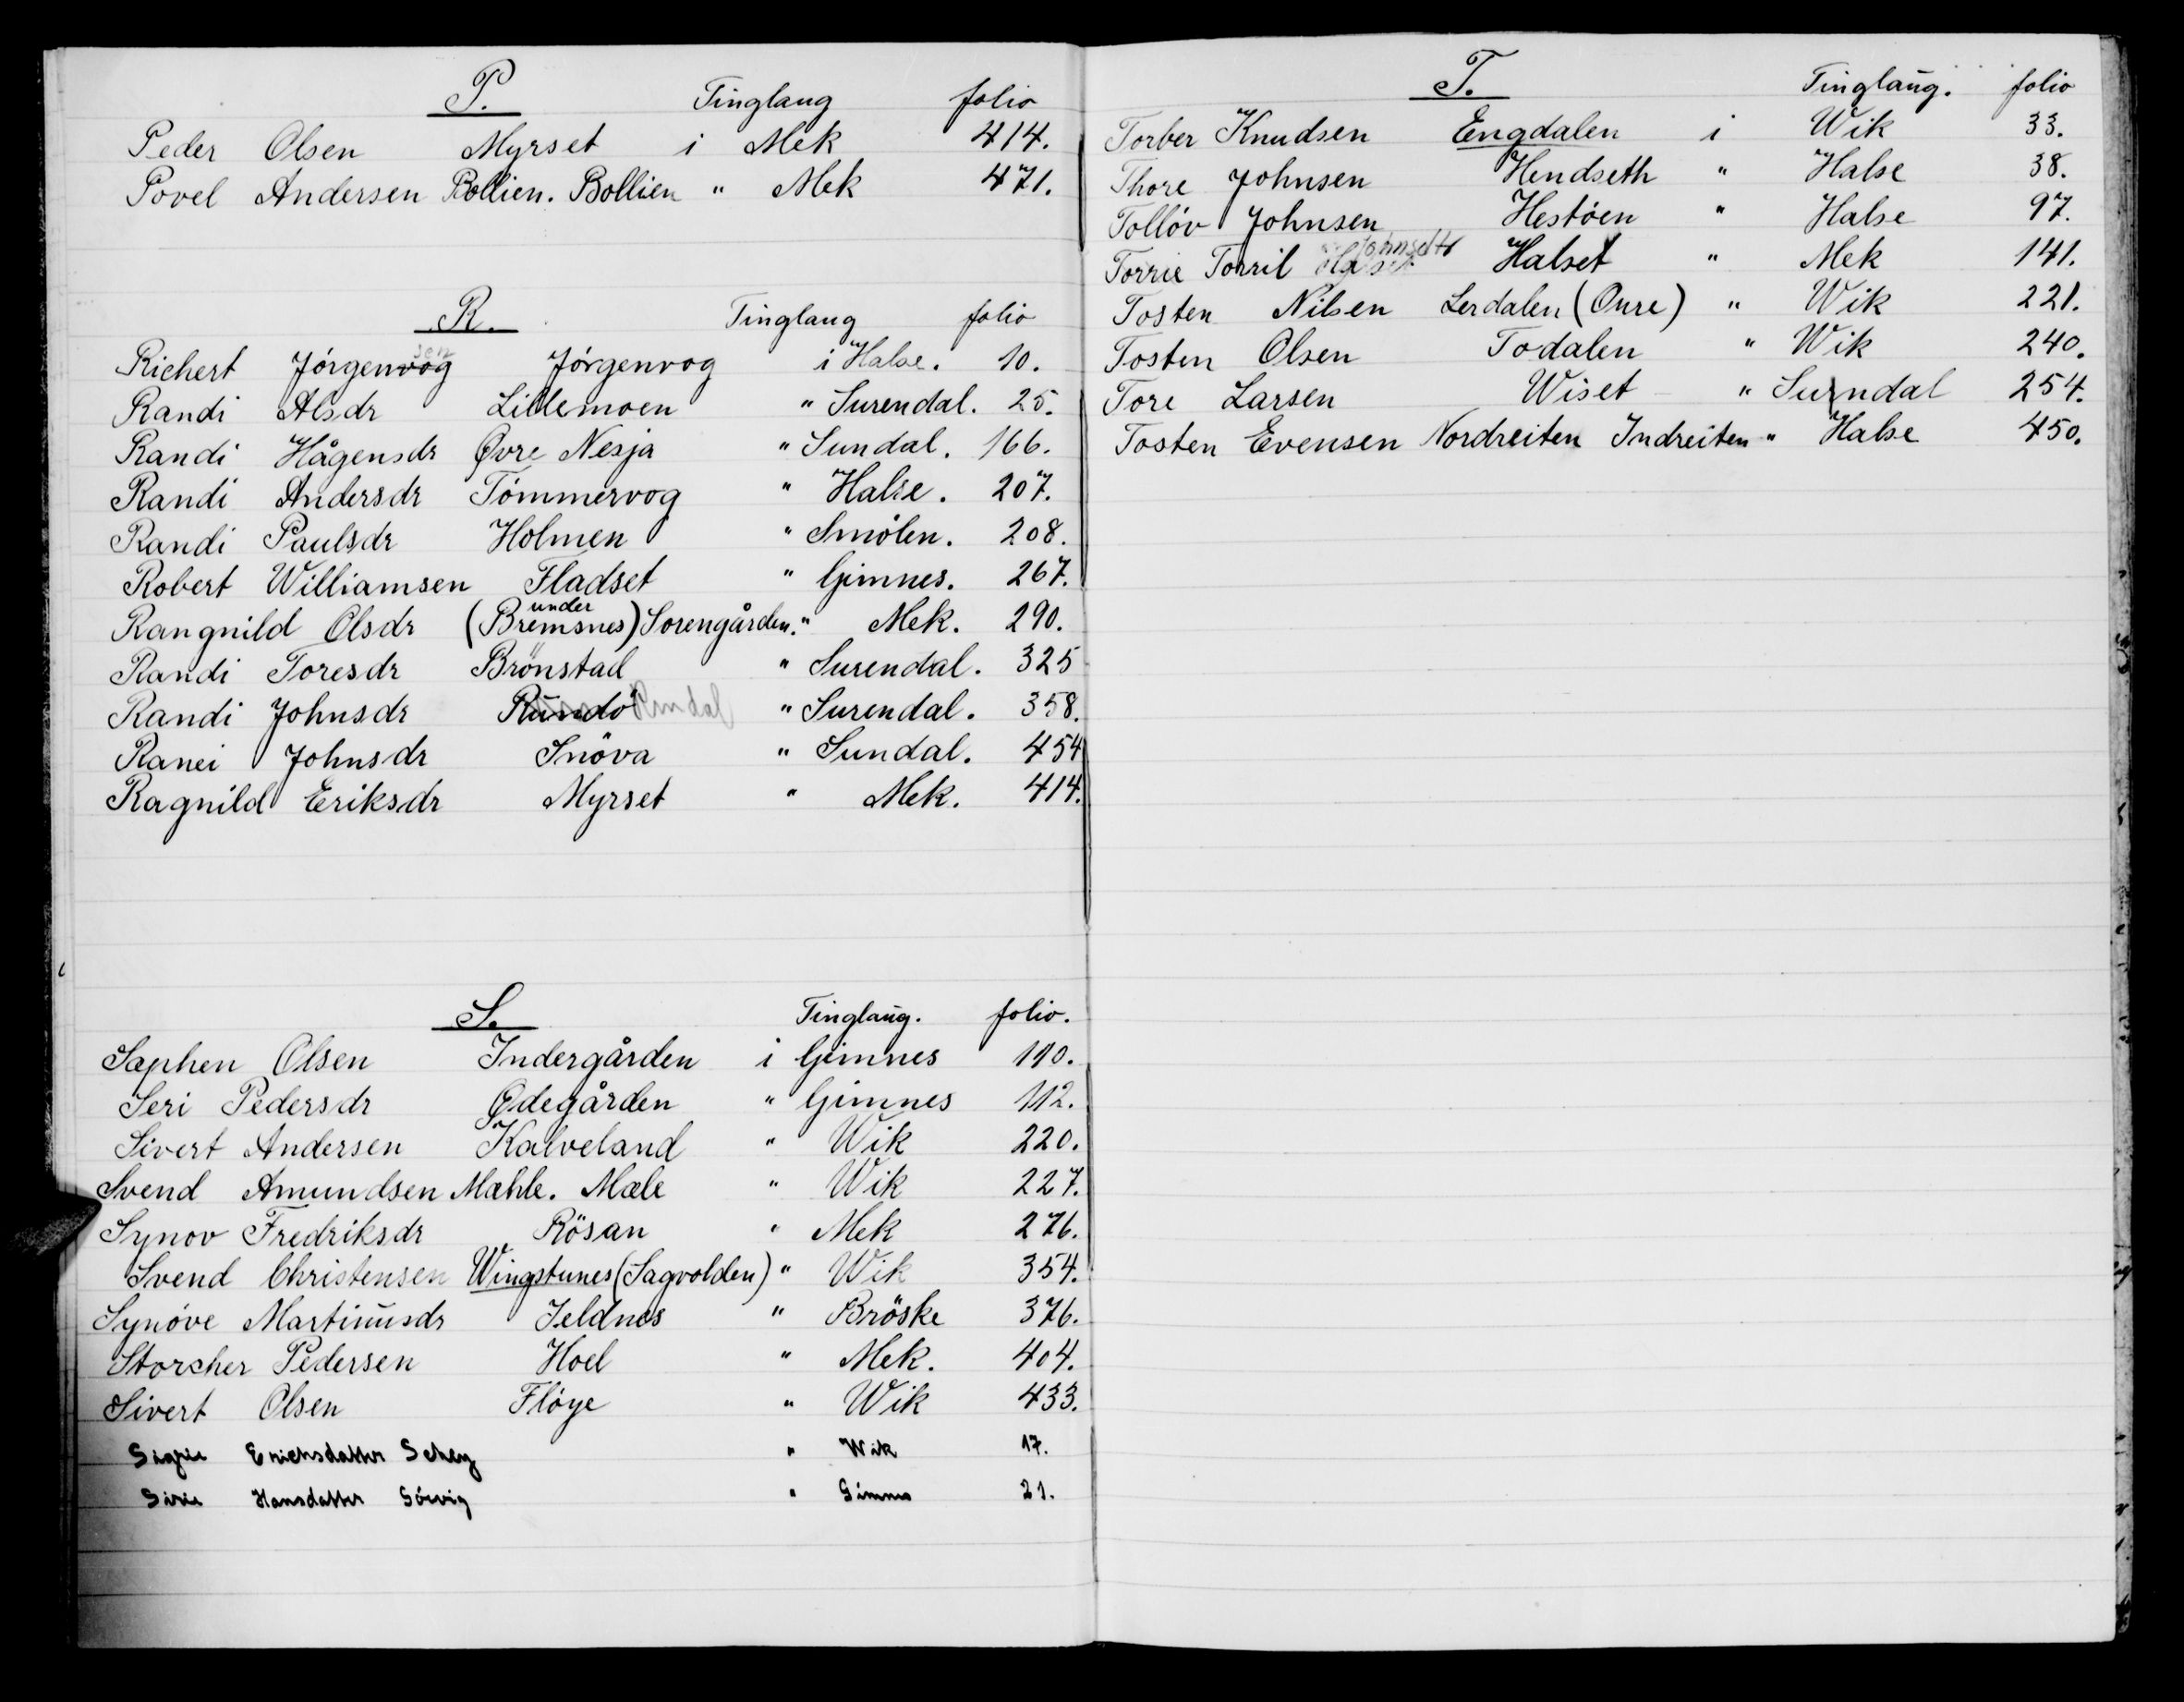 P. Tinglaug folio
Peder Olsen Myrset i Mek 414.
Povel Andersen Bollien. Bollien " Mek 471.
R. Tinglaug folio
Richert Jörgenvog sen Jörgenvog i Halse. 10.
Randi Alsdr Lillemoen " Surendal. 25.
Randi Hågensdr Øvre Nesja " Sundal. 166.
Randi Andersdr Tömmervog " Halse. 207.
Randi Paulsdr Holmen " Smölen. 208.
Robert Williamsen Fladset " Gimnes. 267.
Rangnild Olsdr (under Bremsnes) Sorengården. " Mek. 290.
Randi Toresdr Brönstad " Surendal. 325
Randi Johnsdr Rundö Rindal " Surendal. 358.
Ranei Johnsdr Snöva " Sundal. 454
Ragnild Eriksdr Myrset " Mek. 414.
S. Tinglaug. folio.
Saphen Olsen Indergården i Gimnes 110.
Seri Pedersdr Ødegården " Gimnes 112.
Sivert Andersen Kalveland " Wik 220.
Svend Amundsen Mæhle. Mæle " Wik 227.
Synov Fredriksdr Rösan " Mek 276.
Svend Christensen Wingstunes (Sagvolden) " Wik 354.
Synöve Martinusdr Jeldnes " Bröske 376.
Storcher Pedersen Hoel " Mek. 404.
Sivert Olsen Flöye " Wik 433.
Erichsdatter " Wik 17.
Sirie Hansdatter " 21.
T. Tinglaug. folio
Torber Knudsen Engdalen i Wik 33.
Thore Johnsen Hendseth " Halse 38.
Tollöv Johnsen Hestöen " Halse 97.
Torrie Torril Johnsdtr Halset " Mek 141.
Tosten Nilsen Lerdalen (Oure) " Wik 221.
Tosten Olsen Todalen " Wik 240.
Tore Larsen Wiset " Surndal 254.
Tosten Evensen Nordreiten Indreiten " Halse 450.